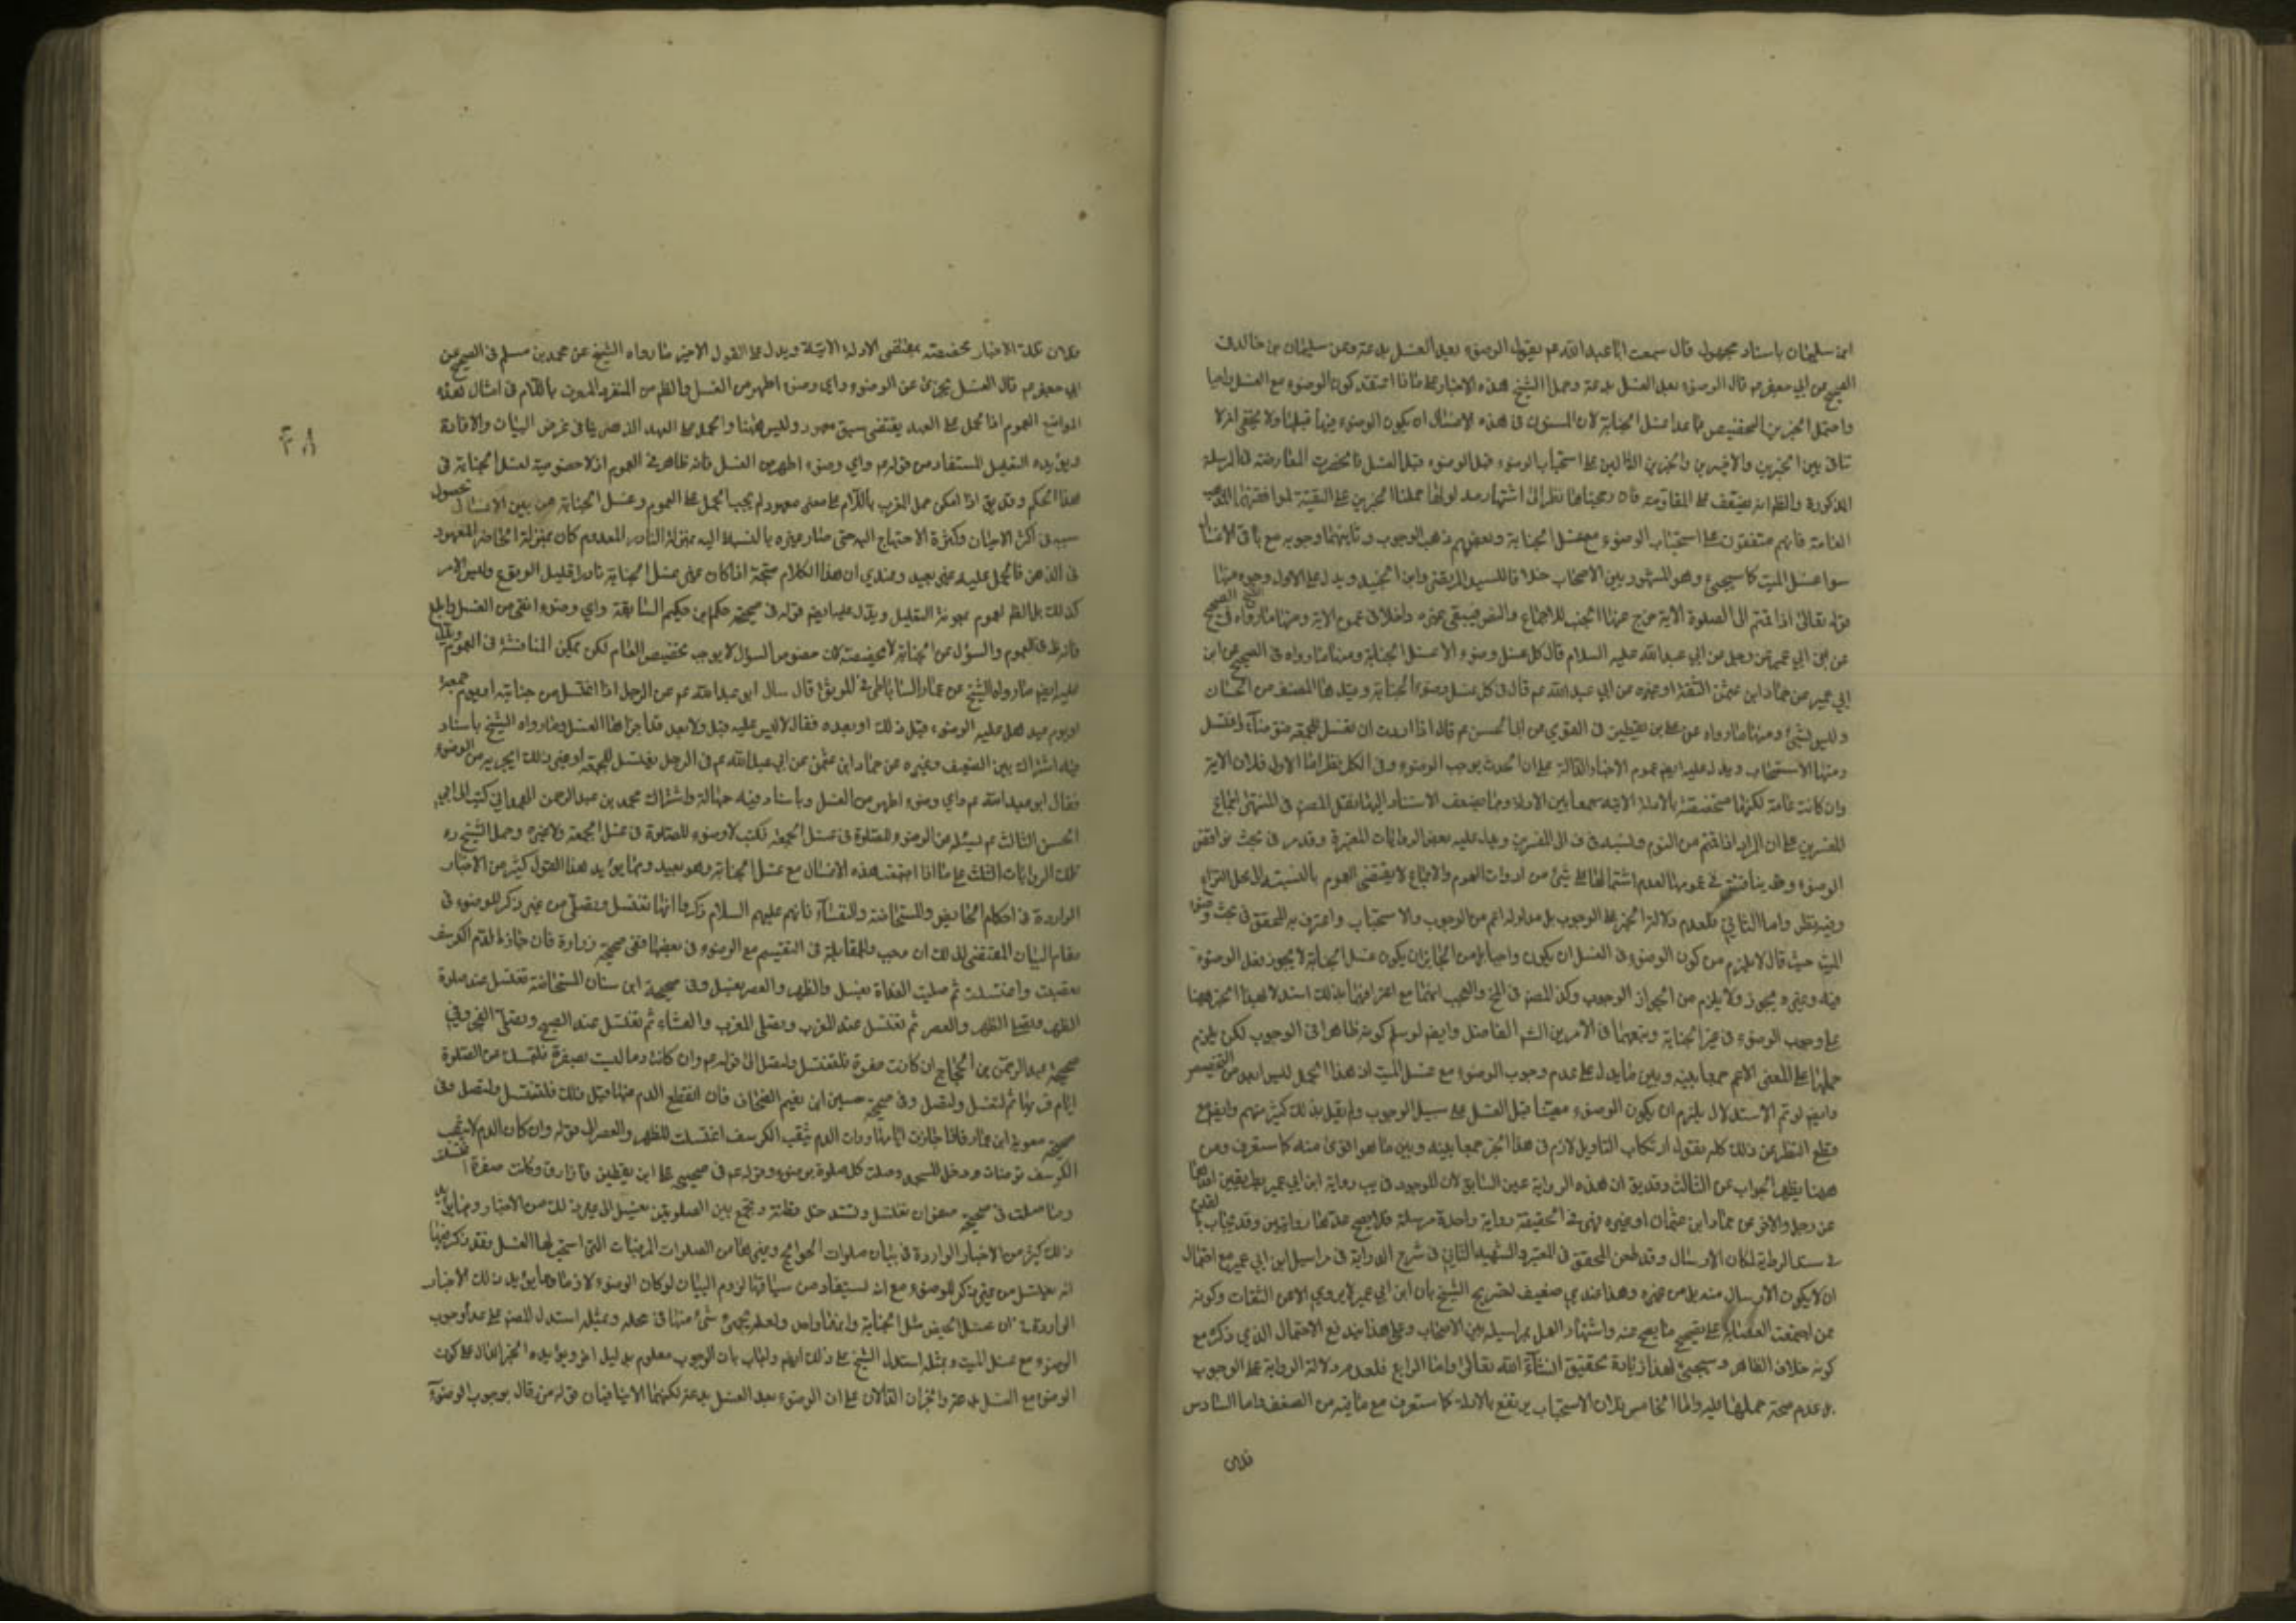 ابن سليمان باسناد مجهول قال سمعت ابا عبد الله عم يقول الوضوء بعد الغسل بدعة وعن سليمان بن خالد في
الصحيح عن ابي جعفر عم قال الوضوء بعد الغسل بدعة وحمل الشيخ هذه الاخبار على ما اذا اعتقد كون الوضوء مع الغسل واجبا
واحتمل الخبرين التخصيص بما عدا غسل الجنابة لان المسنون في هذه الاغسال ان يكون الوضوء فيها قبلها ولا يخفى انه لا
تنافي بين الخبرين والاخيرين والخبرين الدالين على استحباب الوضوء قبل الوضوء قبل الغسل فانحصرت المعارضة في المرسلة
المذكورة والظ انه يضعف على المقاومة فان رجحناها نظرا الى اشتهار مدلولها حملنا الخبرين على التقية لموافقتهما لمذهب
العامة فانهم متفقون على استحباب الوضوء مع غسل الجنابة وبعضهم ذهب الوجوب وثانيهما وجوبه مع باقي الاغسال
سوا غسل الميت كا سيجيء وهو المشهور بين الاصحاب خلافا للسيد المرتضى وابن الجنيد ويدل على الاول وجوه منها
قوله تعالى اذا قمتم الى الصلوة الاية خرج منها الجنب للاجماع والنص فيبقى غيره داخلا في عموم الاية ومنها ما رواه الشيخ في الصحيح
عن ابن ابي عمير عن رجل عن ابي عبد الله عليه السلام قال كل غسل وضوء الا غسل الجنابة ومنها ما رواه في الصحيح عن ابن
ابي عمير عن حماد ابن عثمن الثقة او غيره عن ابي عبد الله عم قال في كل غسل وضوء الا الجنابة وعد هذا المصنف من الحسان
وليس بشيء ومنها ما رواه عن علي بن يقطين في القوي عن ابي الحسن عم قال اذا اردت ان تغتسل للجمعة فتوضأ واغتسل
ومنها الاستصحاب ويدل عليه ايضا عموم الاخبار الدالة على ان الحدث يوجب الوضوء وفي الكل نظر اما الاول فلان الاية
وان كانت عامة لكنها مخصصة بالادلة الاتية جمعا بين الادلة وبما يضعف الاستناد اليها نقل المص في المنتهى اجماع
المفسرين على ان المراد اذا قمتم من النوم واسنده في ف الى المفسرين ويدل عليه بعض الروايات المعتبرة وقد مر في بحث نواقض
الوضوء وقد يناقش في عمومها لعدم اشتمالها على شيء من ادوات العموم والاجماع لا يقتضي العموم بالنسبة الى محل النزاع
وفيه نظر واما الثاني فلعدم دلالة الخبر على الوجوب بل مدلوله اعم من الوجوب والاستحباب واعترف به المحقق في بحث وضوء
الميت حيث قال لا يلزم من كون الوضوء في الغسل ان يكون واجبا بل من الجائز ان يكون غسل الجنابة لا يجوز فعل الوضوء
فيه وغيره يجوز ولا يلزم من الجواز الوجوب وكذا المص في المخ والعجب انهما مع اعترافهما بذلك استدلا بهذا الخبر ههنا
على وجوب الوضوء في غير الجنابة وتبعهما في الامرين الش الفاضل وايضا لو سلم كونه ظاهرا في الوجوب لكن يلزم
حملها على المعنى الاعم جمعا بينه وبين ما يدل على عدم وجوب الوضوء مع غسل الميت اذ هذا الحمل ليس ابعد من التخصيص
وايضا لو تم الاستدلال يلزم ان يكون الوضوء معينا قبل الغسل على سبيل الوجوب ولم يقل بذلك كثير منهم وايضا مع
قطع النظر عن ذلك كله نقول ارتكاب التاويل لازم في هذا الخبر جمعا بينه وبين ما هو اقوى منه كا ستعرف ومن
ههنا يظهر الجواب عن الثالث وقد يق ان هذه الرواية عين السابق لان الموجود في يب رواية ابن ابي عمير بطريقين احدهما
عن رجل والاخرى عن حماد ابن عثمان او غيره فهي في الحقيقة رواية واحدة مرسلة فلا يصح عدهما روايتين وقد يجاب بالقدح
في سند الرواية لمكان الارسال وقد طعن المحقق في المعتبر والشهيد الثاني في شرح الدراية في مراسيل ابن ابي عمير مع احتمال
ان لا يكون الارسال منه بل من غيره وهذا عندي ضعيف لتصريح الشيخ بان ابن ابي عمير لا يروي الا عن الثقات وكونه
ممن اجمعت العصابة على تصحيح ما يصح عنه واشتهار العمل بمراسيله بين الاصحاب وعلى هذا يندفع الاحتمال الذي ذكره مع
كونه خلاف الظاهر وسيجيء لهذا زيادة تحقيق انشاء الله تعالى واما الرابع فلعدم دلالة الرواية على الوجوب
بل عدم صحة حملها عليه واما الخامس فلان الاستصحاب يرتفع بالادلة كا ستعرف مع ما فيه من الضعف واما السادس
فلان
فلان تلك الاخبار مخصصة بمقتضى الادلة الاتية ويدل على القول الاخير ما رواه الشيخ عن محمد بن مسلم في الصحيح عن
ابي جعفر عم قال الغسل يجزئ عن الوضوء واي وضوء اطهر من الغسل والظ من المفرد المعرف باللام في امثال هذه
المواضع العموم اذ الحمل على العهد يقتضي سبق معهود وليس ههنا والحمل على العهد الذهني ينافي غرض البيان والافادة
ويؤيده التعليل المستفاد من قوله عم واي وضوء اطهر من الغسل فانه ظاهر في العموم اذ لا خصوصية لغسل الجنابة في
هذا الحكم وقد يق اذا امكن حمل المعرف باللام على معنى معهود لم يجب الحمل على العموم وغسل الجنابة من بين الاغسال لحصول
سببه في اكثر الاحيان وكثرة الاحتياج اليه حتى صار غيره بالنسبة اليه بمنزلة النادر المعدوم كان بمنزلة الحاضر المعهود
في الذهن فالحمل عليه غير بعيد وعندي ان هذا الكلام متجه اذا كان غير غسل الجنابة نادرا قليل الوقوع وليس الامر
كذلك بل الظ العموم بمعونة التعليل ويدل عليه ايضا قوله في صحيحة حكم ابن حكيم السابقة واي وضوء انقى من الغسل وابلغ
فانه ظ في العموم والسؤال عن الجنابة لا يخصصه لان خصوص السؤال لا يوجب تخصيص العام لكن يمكن المناقشة في العموم ويدل
عليه ايضا ما رواه الشيخ عن عمار الساباطي في الموثق قال سال ابو عبد الله عم عن الرجل اذا اغتسل من جنابته او يوم جمعة
او يوم عيد هل عليه الوضوء قبل ذلك او بعده فقال لا ليس عليه قبل ولا بعد قد اجزاها الغسل وما رواه الشيخ باسناد
فيه اشتراك بين الضعيف وغيره عن حماد ابن عثمن عن ابي عبد الله عم في الرجل يغتسل للجمعة او غير ذلك ايجزيه من الوضوء
فقال ابو عبد الله عم واي وضوء اطهر من الغسل وباسناد فيه جهالة واشتراك محمد بن عبد الرحمن الهمداني كتب الى ابي
الحسن الثالث عم يسئله عن الوضوء للصلوة في غسل الجمعة فكتب لا وضوء للصلوة في غسل الجمعة ولا غيره وحمل الشيخ ره
تلك الروايات الثلث على ما اذا اجتمعت هذه الاغسال مع غسل الجنابة وهو بعيد ومما يؤيد هذا القول كثير من الاخبار
الواردة في احكام الحايض والمستحاضة والنفساء فانهم عليهم السلام ذكروا انها تغتسل وتصلي من غير ذكر للوضوء في
مقام البيان المقتضي لذلك ان وجب والمقابلة في التقسيم مع الوضوء في بعضها ففي صحيحة زرارة فان جاز الدم الكرسف
تعصبت واغتسلت ثم صليت الغداة بغسل والظهر والعصر بغسل وفي صحيحة ابن سنان المستحاضة تغتسل عند صلوة
الظهر وتصلي الظهر والعصر ثم تغتسل عند المغرب وتصلي المغرب والعشاء ثم تغتسل عند الصبح وتصلي الفجر وفي
صحيحة عبد الرحمن بن الحجاج ان كانت صفرة فلتغتسل ولتصل الى قوله عم وان كانت دما ليست بصفرة فلتمسك عن الصلوة
ايام قرئها ثم لتغتسل ولتصل وفي صحيحة حسين ابن نعيم الصحاف فان انقطع الدم عنها قبل ذلك فلتغتسل ولتصل وفي
صحيحة معوية ابن عمار فاذا جازت ايامها ورات الدم يثقب الكرسف اغتسلت للظهر والعصر الى قوله وان كان الدم لا يثقب
الكرسف توضات ودخل المسجد وصلت كل صلوة بوضوء وقوله عم في صحيحي علي ابن يقطين فاذا رق وكانت صفرة اغتسلت
وصلت وفي صحيحة صفوان تغتسل وتستدخل قطنة وتجمع بين الصلوتين بغسل الى غير ذلك من الاخبار ومما يؤيد
ذلك كثير من الاخبار الواردة في بيان صلوات الحوائج وغيرها من الصلوات المرغبات التي استحب لها الغسل فقد ذكر فيها
انه يغتسل من غير ذكر للوضوء مع انه يستفاد من سياقها لزوم البيان لو كان الوضوء لازما ومما يؤيد ذلك الاخبار
الواردة بان غسل الحيض مثل الجنابة وانهما واحد ولعله يجيء شيء منها في محله وبمثله استدل المص على عدم وجوب
الوضوء مع غسل الميت وبمثله استدل الشيخ على ذلك ايضا واجاب بان الوجوب معلوم بدليل اخر ويؤيده الخبر الدال على كون
الوضوء مع الغسل بدعة والخبران الدالان على ان الوضوء بعد الغسل بدعة لكنهما لا ينافيان قوله من قال بوجوب الوضوء